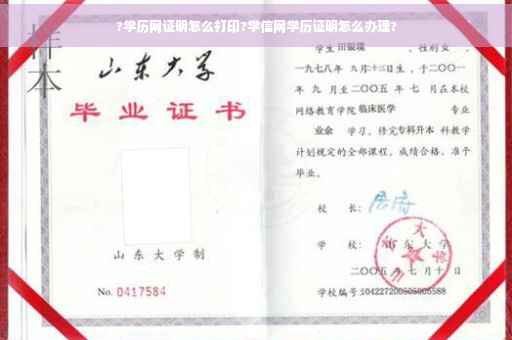 ?学历网证明怎么打印?学信网学历证明怎么办理?
样本
山东大学
毕业证书
山东大学制
No. 0417584
学生 田银瑞 ，性别 女 ，
一九七八年 九月十三日生，于二〇〇一
年 九 月至二〇〇五 年 七 月在本校
网络教育学院 临床医学 专业
业余 学习，修完专科升本 科教学
计划规定的全部课程，成绩合格，准予
毕业。
校 长：
学 校： 山东大学
二〇〇五 年 七 月 十 日
学校编号:104227200505005588